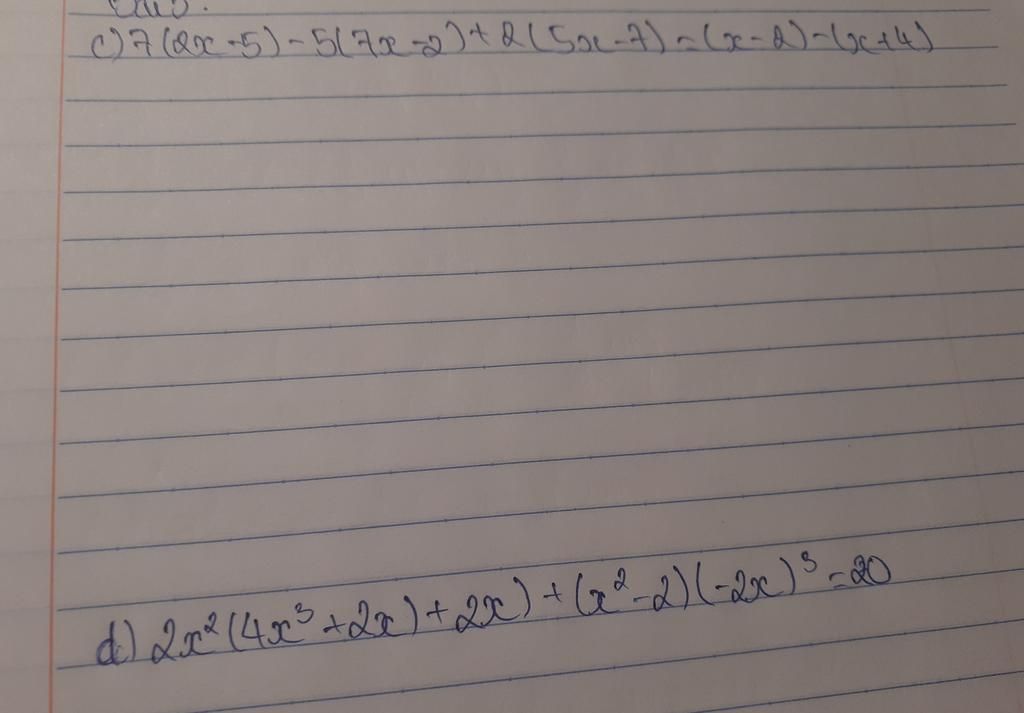 c) 7(2x-5)-5(7x-2)+2(5x-7)=(x-2)-(x+4)
d) 2x²(4x³+2x)+2x)+(x²-2)(-2x)³=20